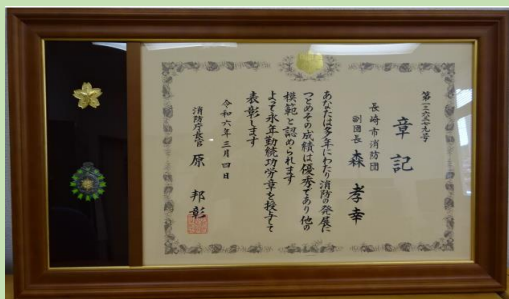 章記
長崎市消防団
副団長 森 孝幸
あなたは多年にわたり消防の発展に
つとめその成績は優秀であり他の
模範と認められます
よつて永年勤続功労章を授与して
表彰します
令和六年三月四日
消防庁長官 原 邦彰